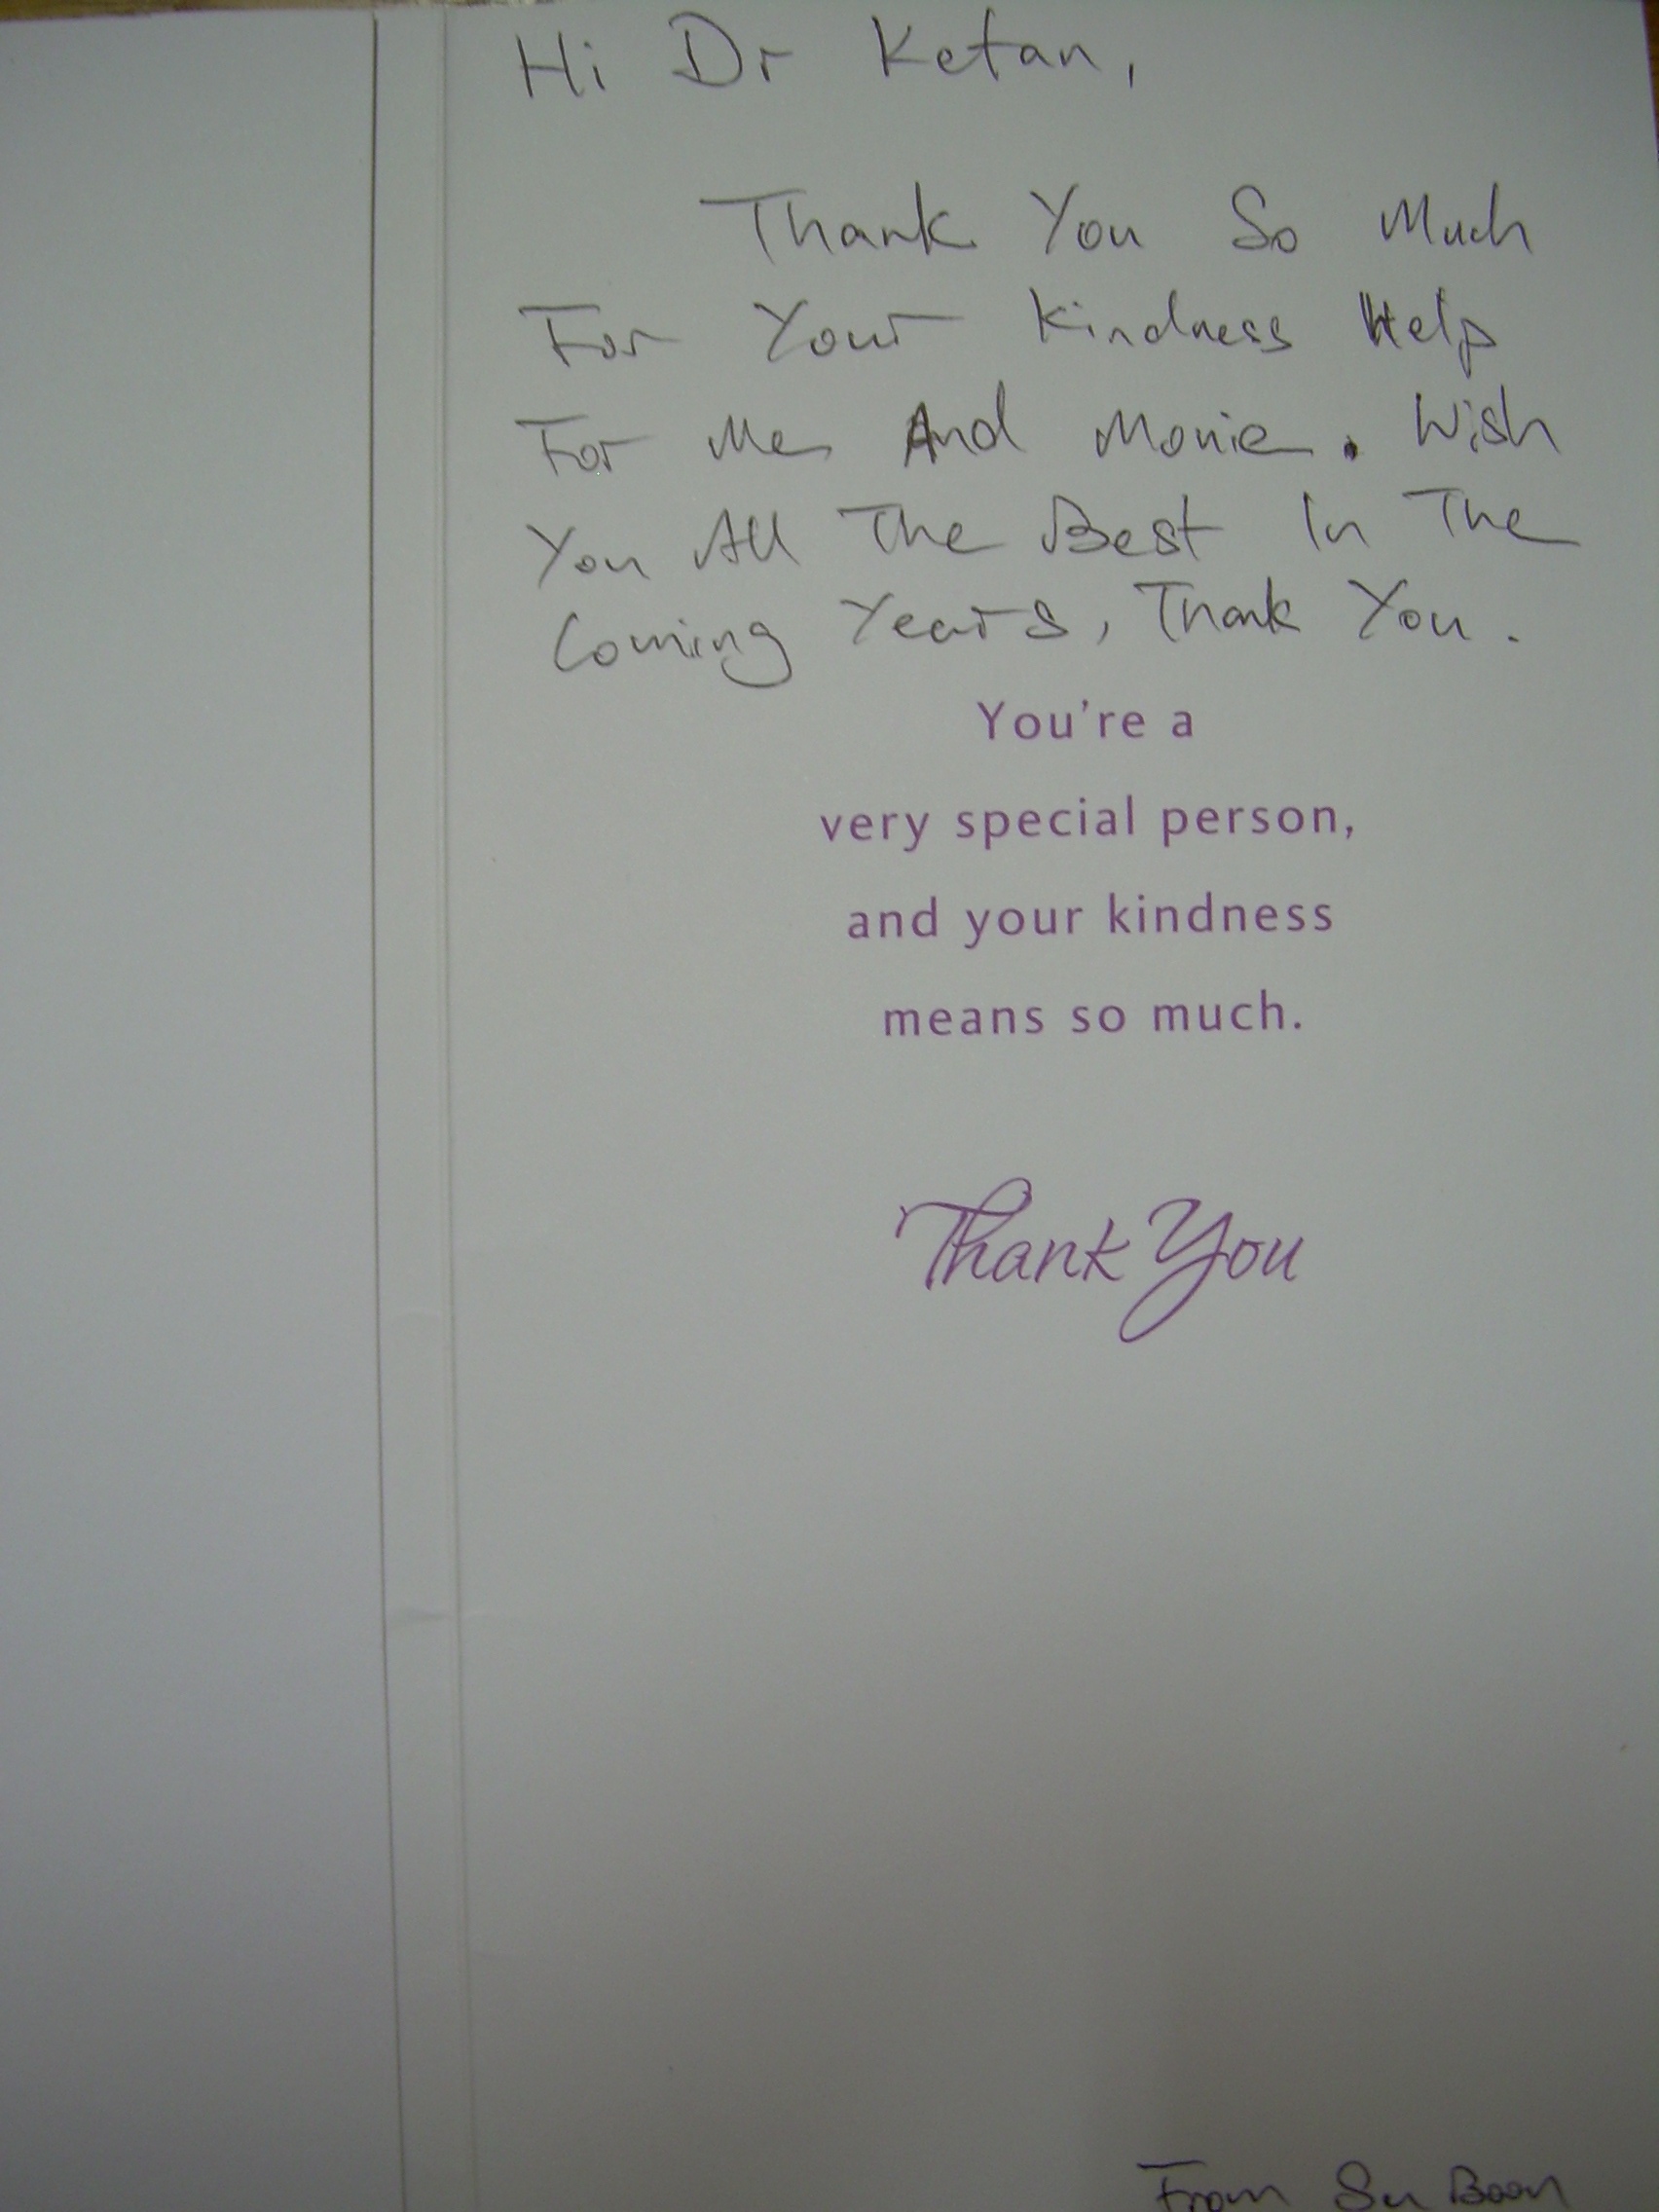 Hi Dr Ketan,
Thank You So Much
For Your Kindness Help
For Me And Monie. Wish
You All The Best In The
Coming Years, Thank You.
You're a
very special person,
and your kindness
means so much.
Thank You
From Su Boon